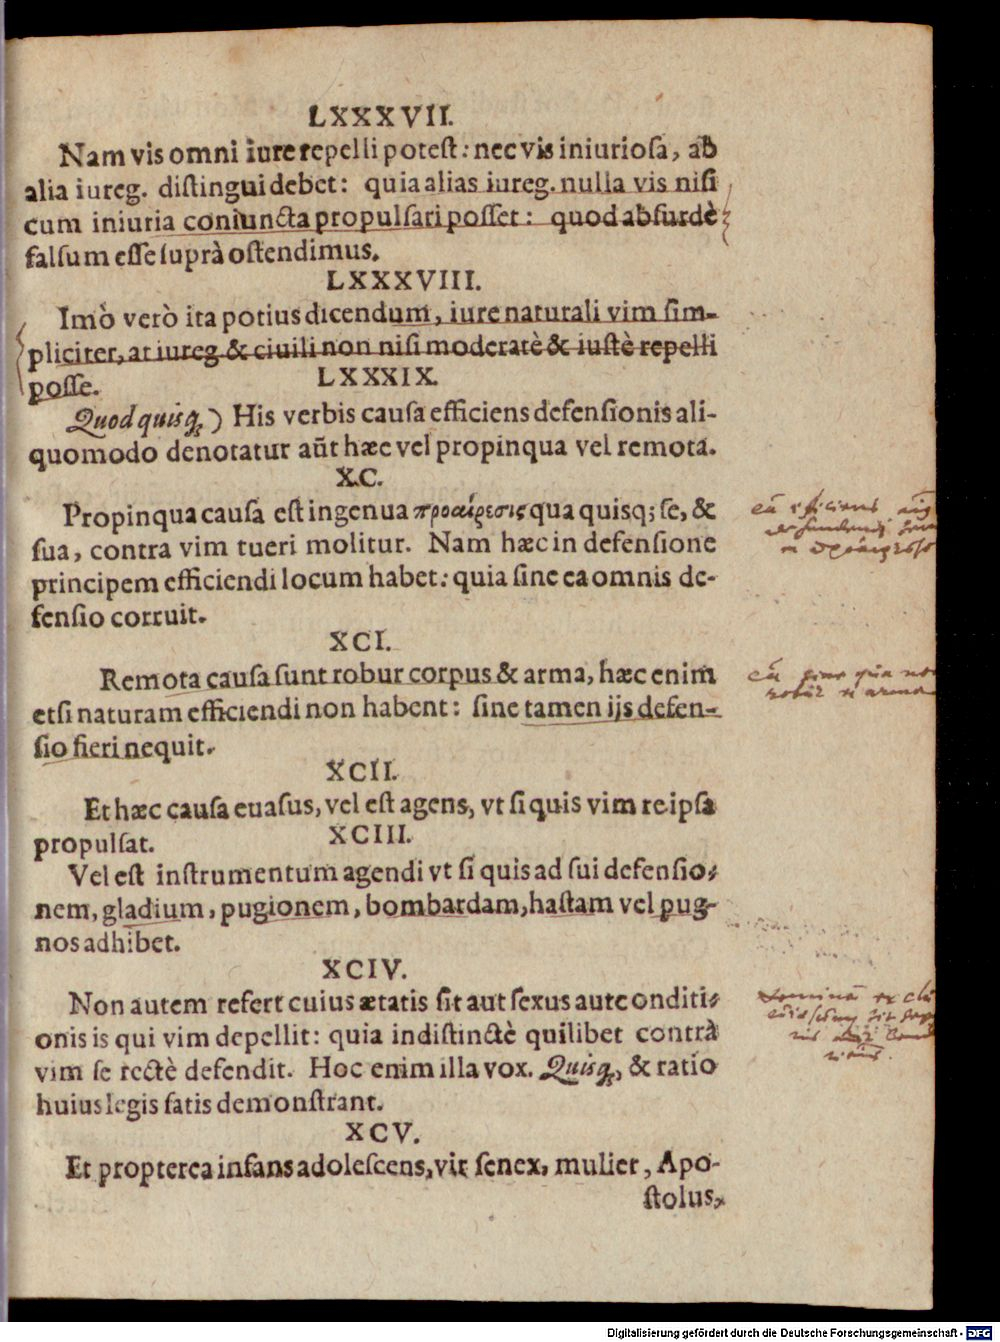 LXXXVII.
Nam vis omni iure repelli potest: nec vis iniuriosa, ab
alia iureg. distingui debet: quia alias iureg. nulla vis nisi
cum iniuria coniuncta propulsari posset: quod absurdè
falsum esse suprà ostendimus.
LXXXVIII.
Imò verò ita potius dicendum, iure naturali vim sim-
pliciter, at iureg & ciuili non nisi moderatè & iustè repelli
posse.
LXXXIX.
Quod quisq;) His verbis causa efficiens defensionis ali-
quomodo denotatur aūt hæc vel propinqua vel remota.
XC.
Propinqua causa est ingenua προαίρεσις qua quisq; se, &
sua, contra vim tueri molitur. Nam hæc in defensione
principem efficiendi locum habet: quia sine ea omnis de-
fensio corruit.
XCI.
Remota causa sunt robur corpus & arma, hæc enim
etsi naturam efficiendi non habent: sine tamen ijs defen-
sio fieri nequit.
XCII.
Et hæc causa euasus, vel est agens, vt si quis vim re ipsa
propulsat.
XCIII.
Vel est instrumentum agendi vt si quis ad sui defensio-
nem, gladium, pugionem, bombardam, hastam vel pug-
nos adhibet.
XCIV.
Non autem refert cuius ætatis sit aut sexus aut conditi-
onis is qui vim depellit: quia indistinctè quilibet contrà
vim se rectè defendit. Hoc enim illa vox. Quisq;, & ratio
huius legis satis demonstrant.
XCV.
Et propterea infans adolescens, vir senex, mulier, Apo-
stolus,
efficiens
robur arma
Digitalisierung gefördert durch die Deutsche Forschungsgemeinschaft - DFG